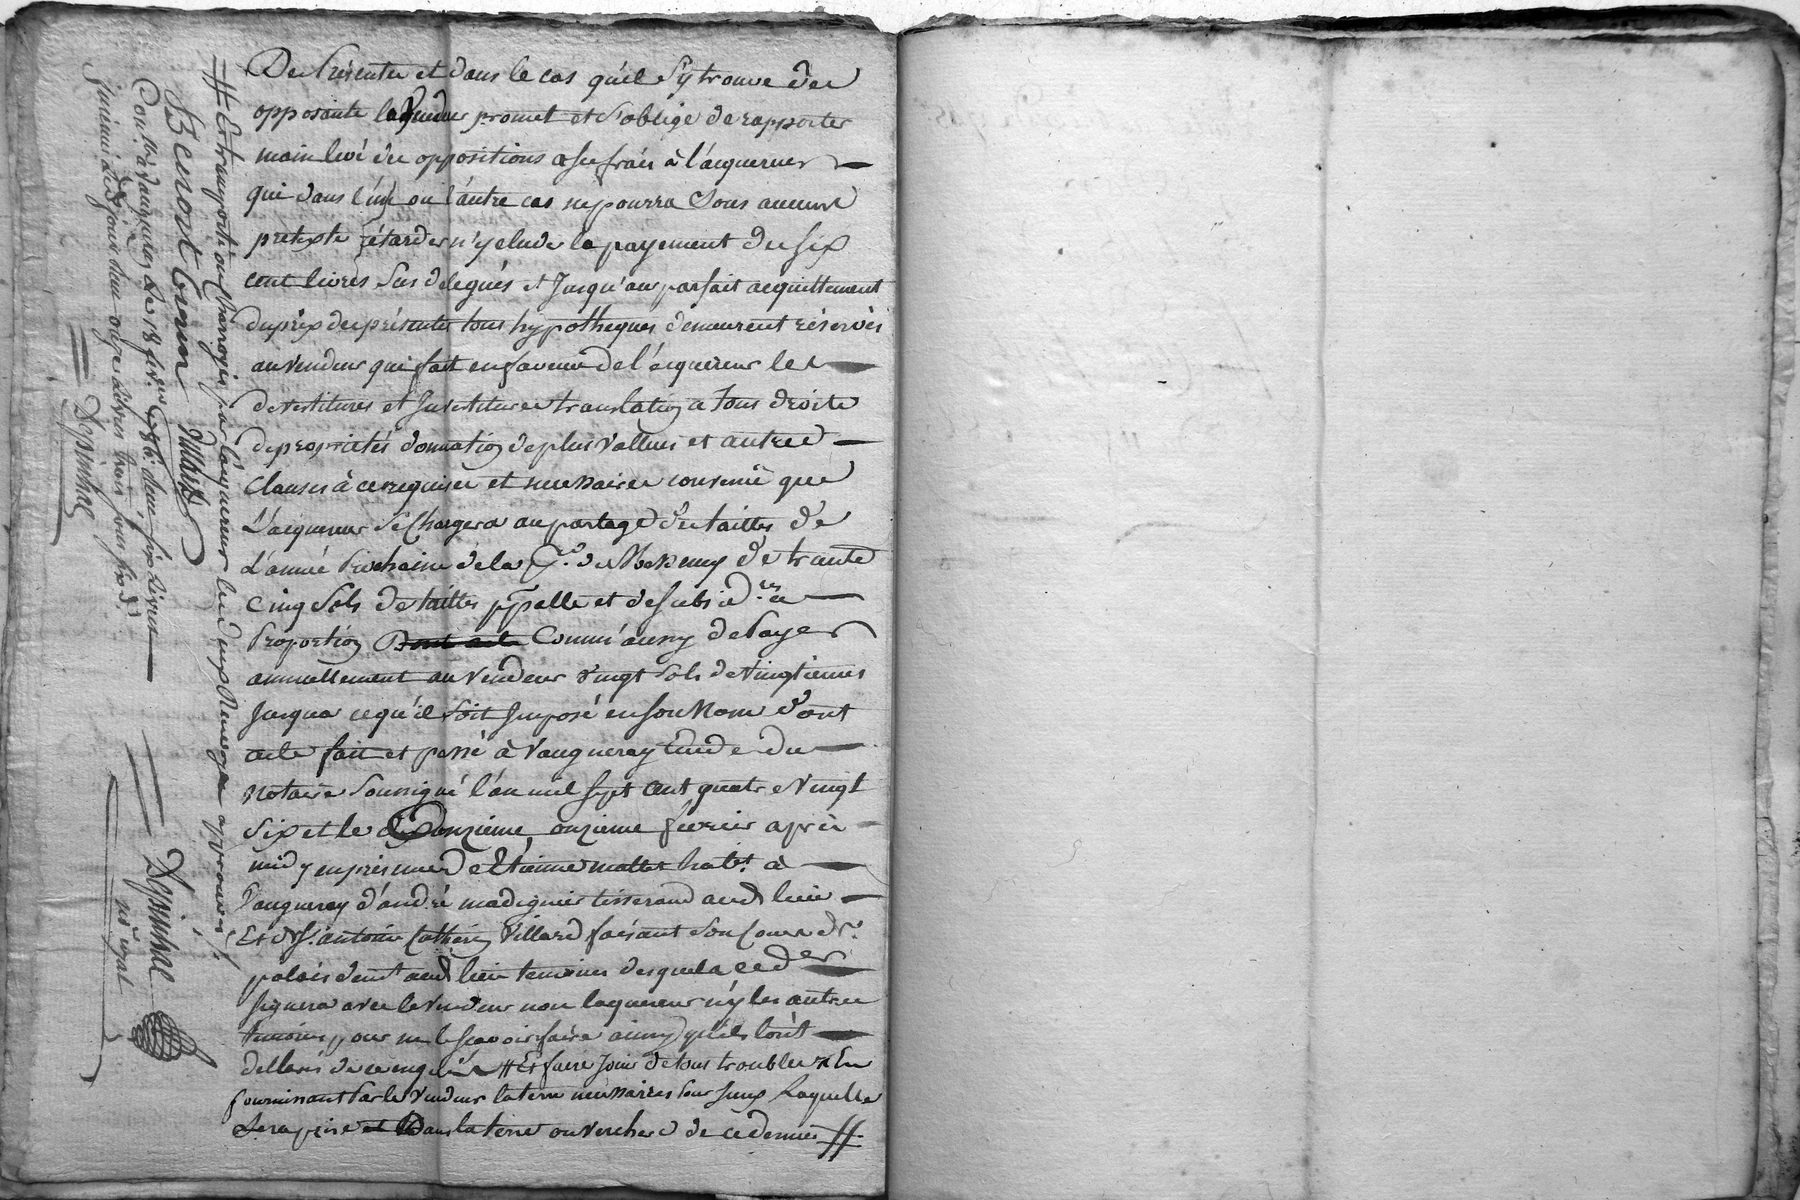 Des Presentes et dans le cas quil S'y trouve des
opposants le vendeur promet et S'oblige de rapporter
main levé des oppositions a ses frais à l'acquereur
qui dans l'un ou l'autre cas ne pourra Sous aucuns
pretexte retarder n'y eluder le payement des Six
cent livres Sus delegués et Jusqu'au parfait acquittement
du prix des présentes tous hypotheques demeurent réservés
au vendeur qui fait en faveur de l'acquereur les
devestitures et Investitures translation de tous droits
de propriétés donnation de plus vallues et autres
Clauses à ce requises et necessaires convenu que
L'acquereur Se Chargera au partage des tailles de
L'année Prochaine de la de Messimy de trente
Cinq Sols de tailles ppalle et de subsid.res a
Proportion Comm'aussy de Payer
annuellement au vendeur vingt Sols de vingtiemes
Jusqua ce qu'il Soit Imposé en Son Nom Dont
acte fait et passé à Vaugneray Etude du
Notaire Soussigné l'an mil Sept Cent quatre Vingt
Six et le onzieme fevrier après
midy en présence d'Etienne mallet hab.t à
Vaugneray d'andré madignier tisserand aud. lieu
Et de S.r antoine Catherin Villard faisant Son Cours de
palais dem.t aud. lieu temoins desquels ce der
Signera avec le vendeur non l'aquereur n'y les autres
temoins pour ne le Scavoir faire ainsy qu'ils l'ont
dellaré de ce enquis # Et faire Jouir de tous troubles # En
fournissant Par le vendeur la terre necessaires Pour Laquelle
Sera prise dans la terre ou verchere de ce dernier #
# Et transporte ou Charroyés par l'acquereur les deux Renvoys approuvés
Benoit Conin Villard
Cont.llé à Vaugneray le 18 fev.er 1786
Quinze livres trois sous Six d.
Depinhac
Depinhac
n.re royal